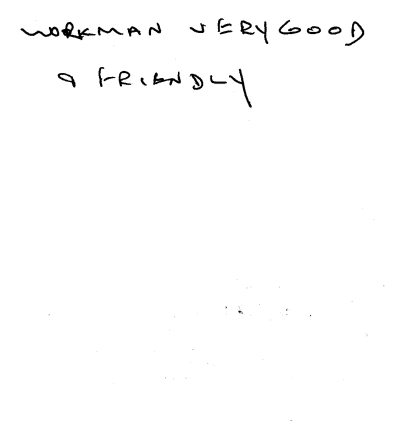 WORKMAN VERY GOOD
& FRIENDLY